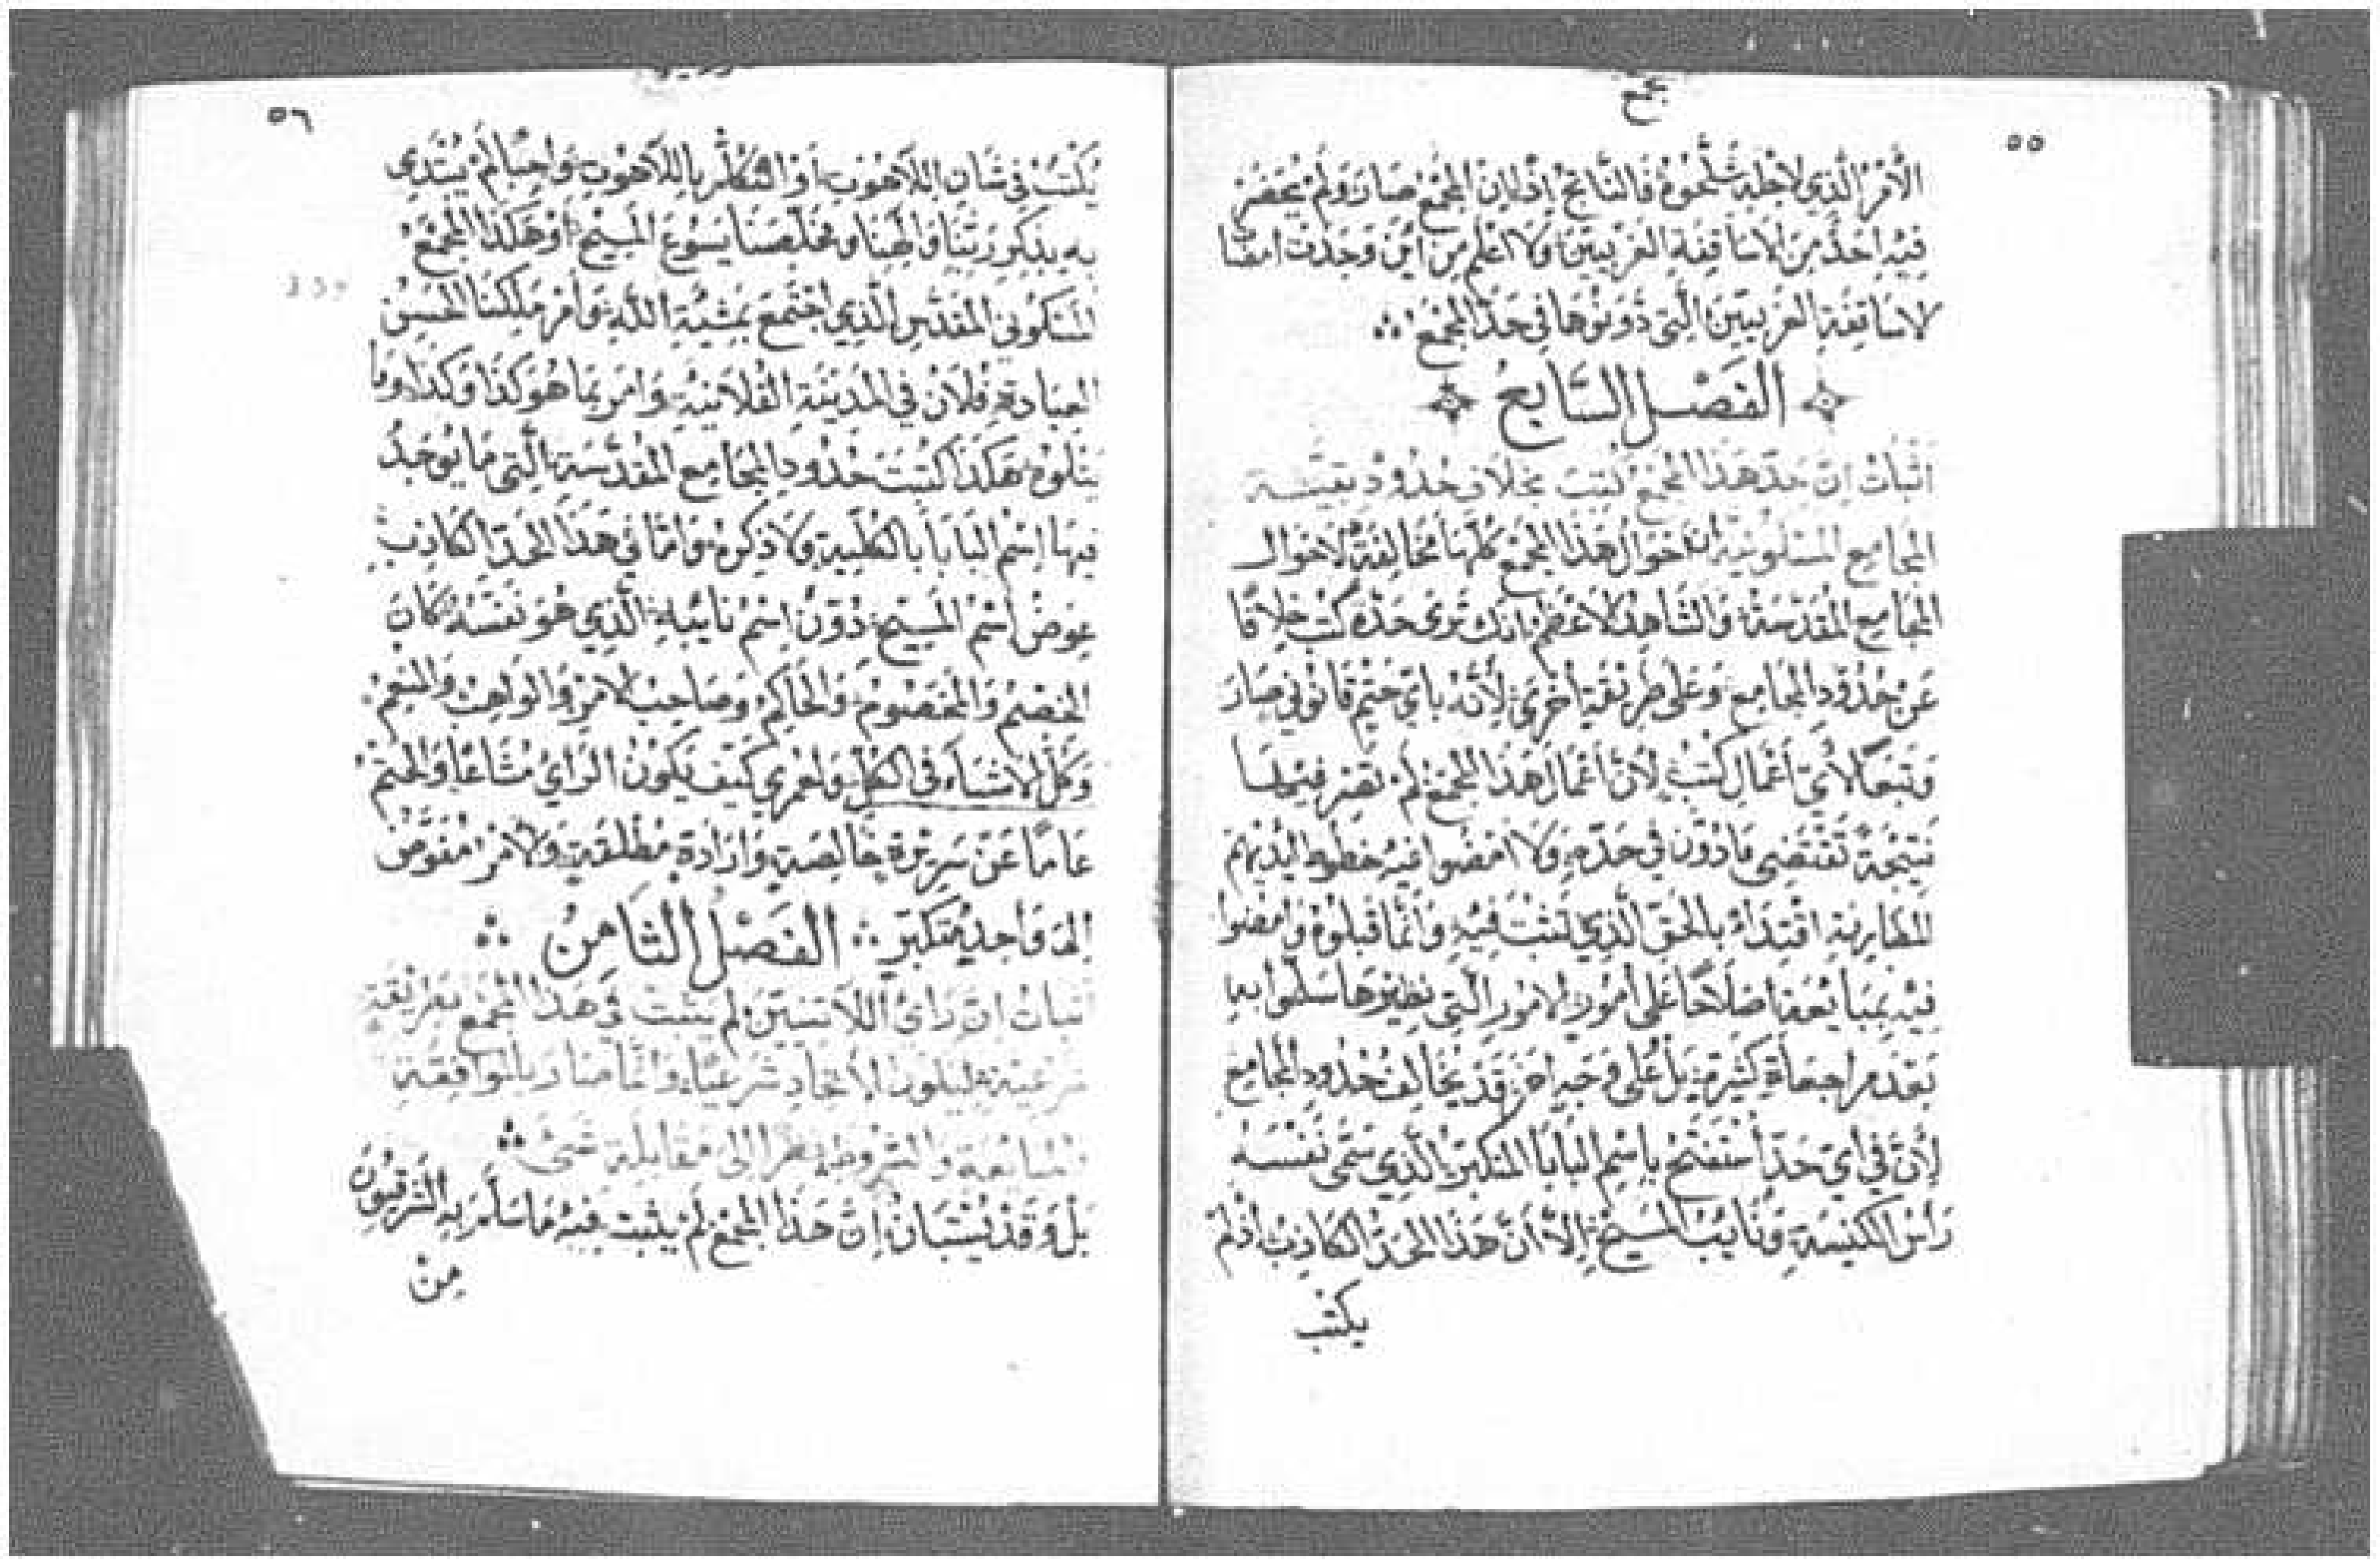 مجمع
٥٥
الأمْرُ الَّذِي لاجلِهِ ثلَمُوهُ فَالنَّاتِجُ إذْ ان المجمَع صَارَ وَلَمْ يحضرْ
فيْهِ احَدٌ مِنَ الاسَاقِفَةِ الغَربيينَ وَلا اعْلم مِن ايْنَ وَجَدت امضا
لاسَاقِفَةِ الغَربيّينَ الَّتِي دَوَنُوهَا فِي حَدّ المجْمَعْ
الفَصْل السَّابِعُ
اثبات ان حَدّ هَذَا المجمَع كُتِبَ بخلاف حُدُودْ بقيَّة
المجَامِع المسْكُونيّة ان احوَال هَذَا المجْمَع كُلّهَا مخَالِفَةٌ لاحْوَال
المجَامِع المقَدّسَة وَالشَاهِدُ الاعْظم انك تَرَى حَدّهُ كُتِبَ خِلافًا
عَنْ حُدُودِ المجَامِع وَعَلى طَريْقَةٍ اخْرَى لأنَّهُ بايّ حَتْمٍ قَانُونِي صَارَ
وَتبَعًا لأيّ اعْمَالٍ كُتِبَ لأنّ اعْمَال هَذَا المجمَع لَمْ تَصِرْ فيْهَا
نَتِيْجَةٌ تَقْتَضِي مَا دُوّن فِي حَدّهِ وَلا امْضُوا فيْهِ خطُوط ايْدْيهم
المطَارِنة اقْتِدَاءً بالحَقّ الَّذِي ثبتَ فِيْهِ وَانّمَا قَبلُوهُ وَامْضُوا
فيْهِ
بَعْد مرَاجعَاةٍ كَثيرَةٍ بَلْ عَلى وَجهٍ اخرْ قَدْ يخَالِفُ حُدُودِ المجَامِع
لأنّ فِي ايّ حَدّ اسْتَفتح بِاسْمِ البَابَا المتكبرْ الَّذِي سَمّى نَفْسَهُ
رَأسَ الكَنِيسَةِ وَنَايبَ المَسيحْ إلاّ انّ هَذَا الحَدّ الكَاذِبْ اذ لَم
يكتب
٥٦
يَكْتُبْ فِي شَانِ اللاهُوتِ اوْ التَّكلّم بِاللاهُوتِ وَاجبًا لَمْ يَبْتَدِي
بهِ بذكِر رَبّنَا وَالَهنَا وَمُخَلّصَنَا يَسُوْعَ المَسِيْح اوْ هَكَذَا المجْمَعْ
المَسْكُونِيّ المقَدّس الَّذِي اجْتَمَعَ بمَشِيّة اللَّهِ وَامْرِ مَلِكنَا الحَسَن
العِبَادة فُلان فِي المَدِيْنَةِ الفُلانيّة وَامَر بمَا هُوَ كَذَا وَكَذَا وَمَا
يتلُوهُ هَكَذَا كُتِبَتْ حُدُودِ المجَامِع المقَدَّسَةِ الَّتِي مَا يُوجَدُ
فِيهَا اسْم البَابَا بِالكُلّيةِ وَلا ذكرهُ وَامّا فِي هَذَا الحَدّ الكَاذِبْ
عِوضْ اسْم المَسِيْح دُوّنْ اسْم نَائبهِ الَّذِي هُوَ نَفْسَهُ كَانَ
الخَصْم وَالمخْصُوْم وَالحَاكم وَصَاحِبْ الامْرِ وَالوَاهِبْ وَالمنعمْ
وَكُلّ الاشْيَاءِ فِي الكُلّ وَلعمْري كَيْفَ يَكُونُ الرَايُ مُشَاعًا وَالحَتمْ
عَامًا عَنْ سَرِيرَةٍ خَالِصَةٍ وَارَادَةٍ مُطْلَقَةٍ وَالامْرُ مُفَوَّضْ
الَى وَاحِدٍ مُتكَبّرْ الفَصْل الثامِنُ
اثبات انّ رَايْ اللاتِينيّينَ لم يثبت فِي هَذَا المجْمَع بطريْقَةٍ
شرعيّة ليكون الاتحاد شَرْعيًّا وَانّما صَارَ بالموَافقَة
وَالشروط نظرًا الى مقَابلَةِ شَيٍ
بَلْ وَقَدْ يُسْتَبَانُ انّ هَذَا المجْمَع لَمْ يثبت فيْهِ مَا سَلّمَ بهِ الشَرقيُون
مِنْ